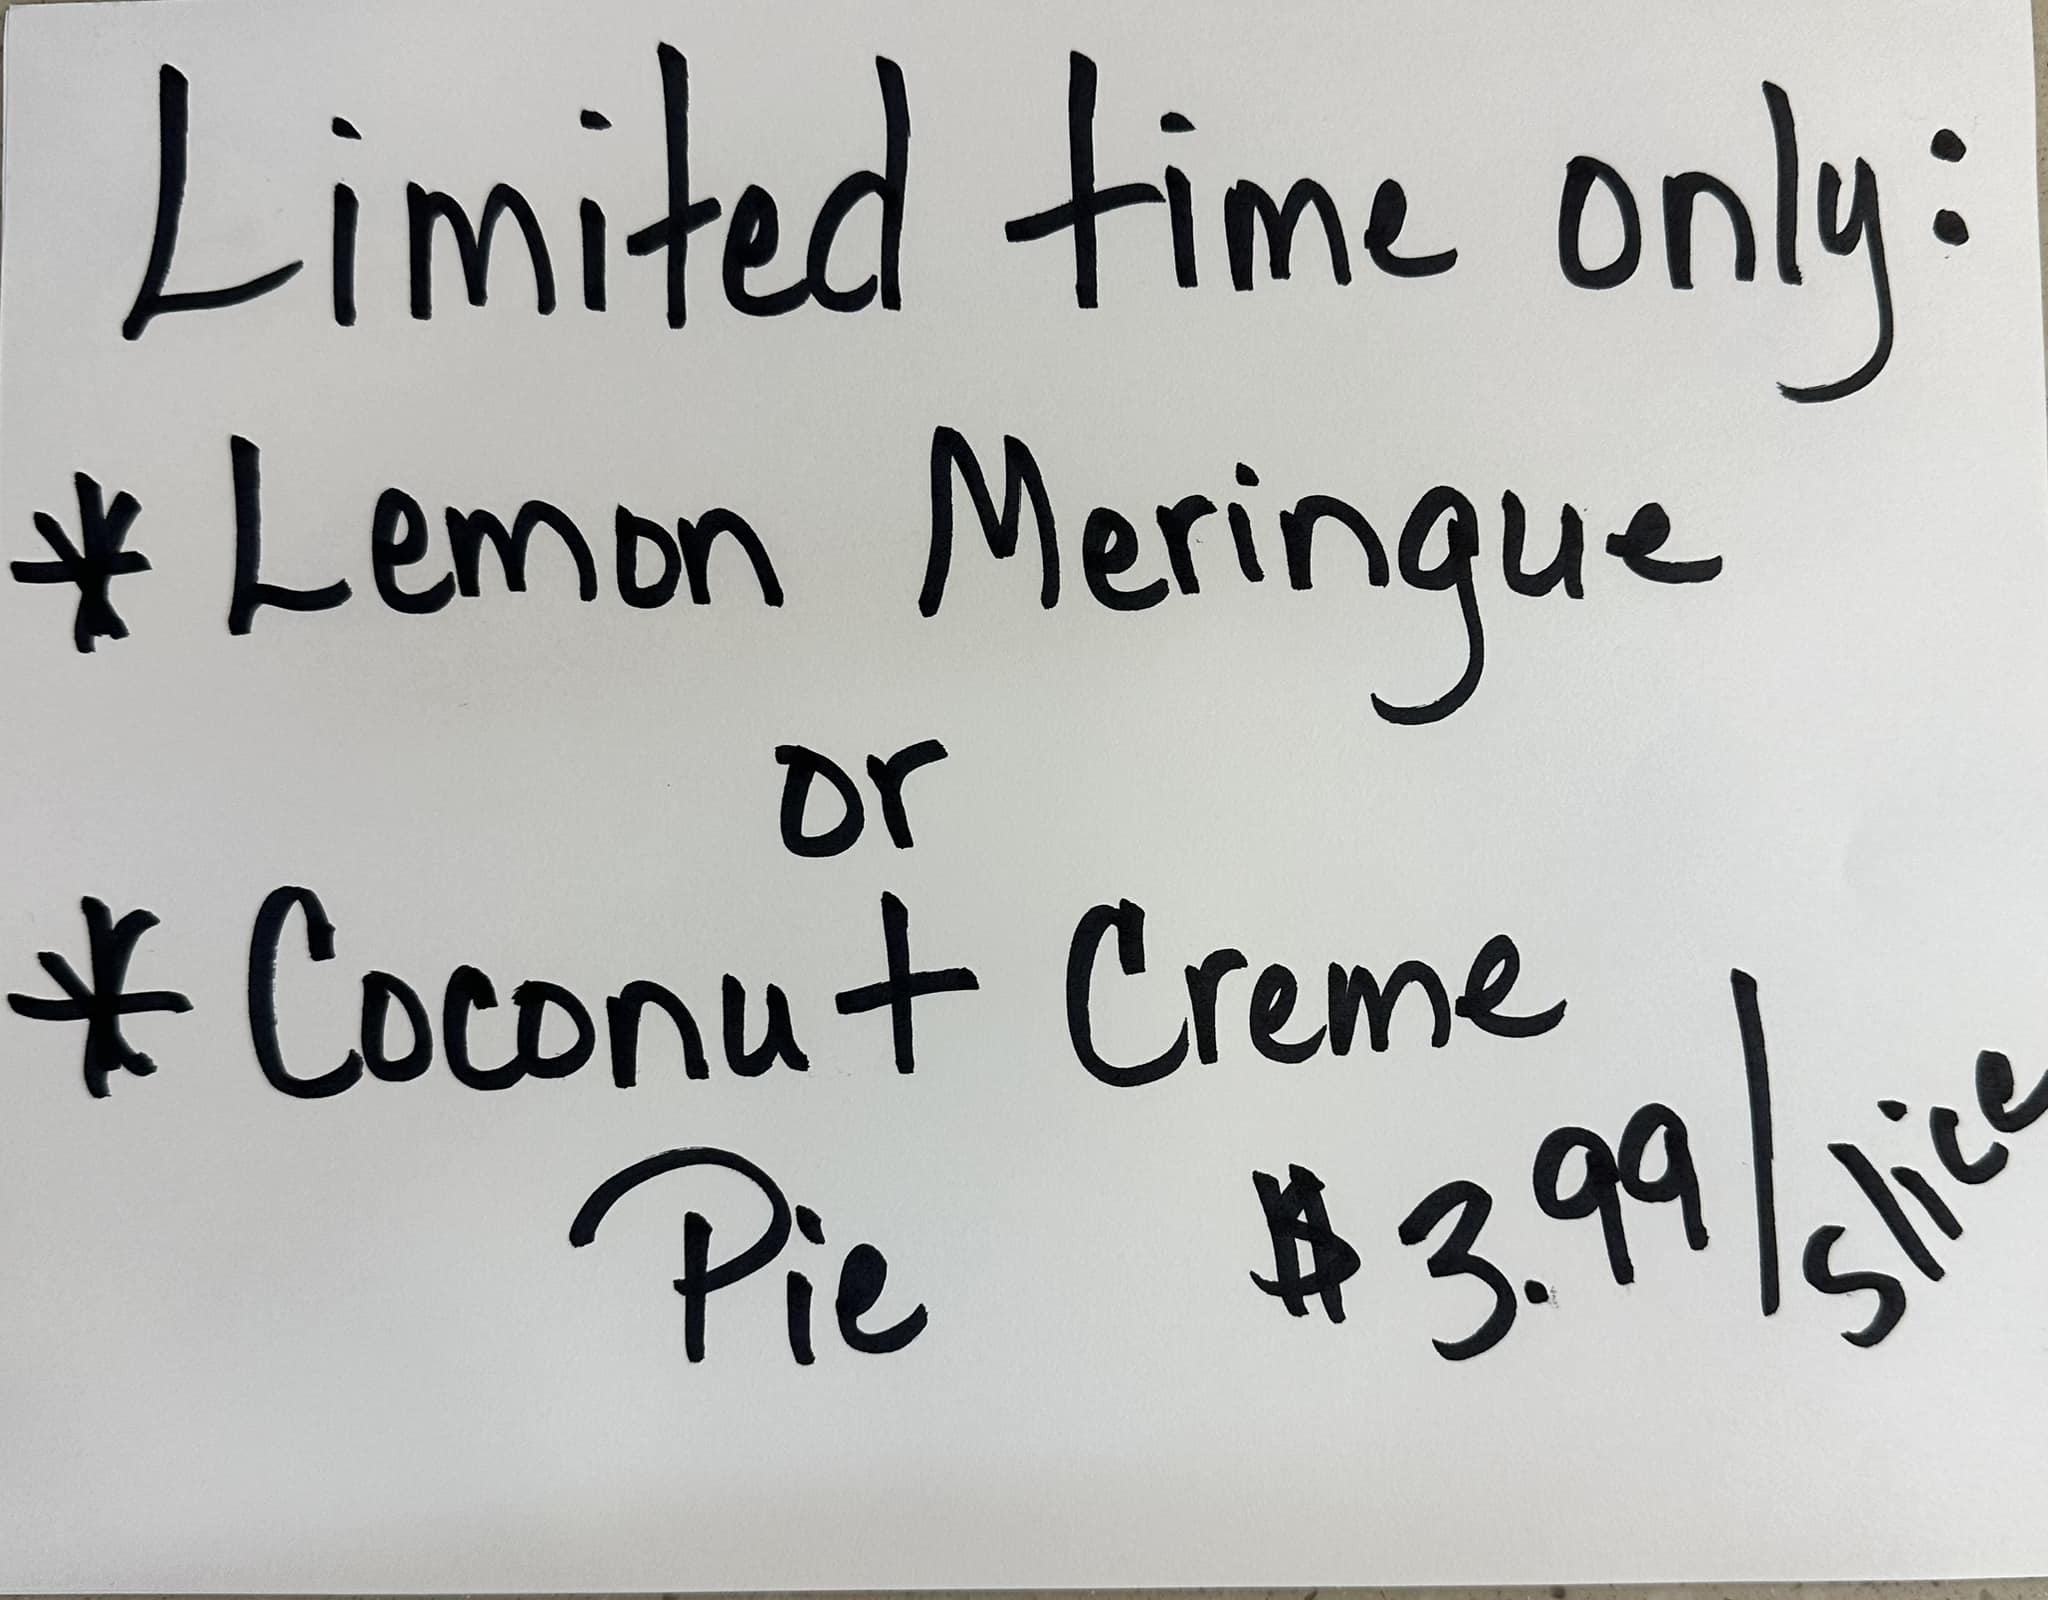 Limited time only:
* Lemon Meringue
or
* Coconut Creme
Pie $3.99/slice